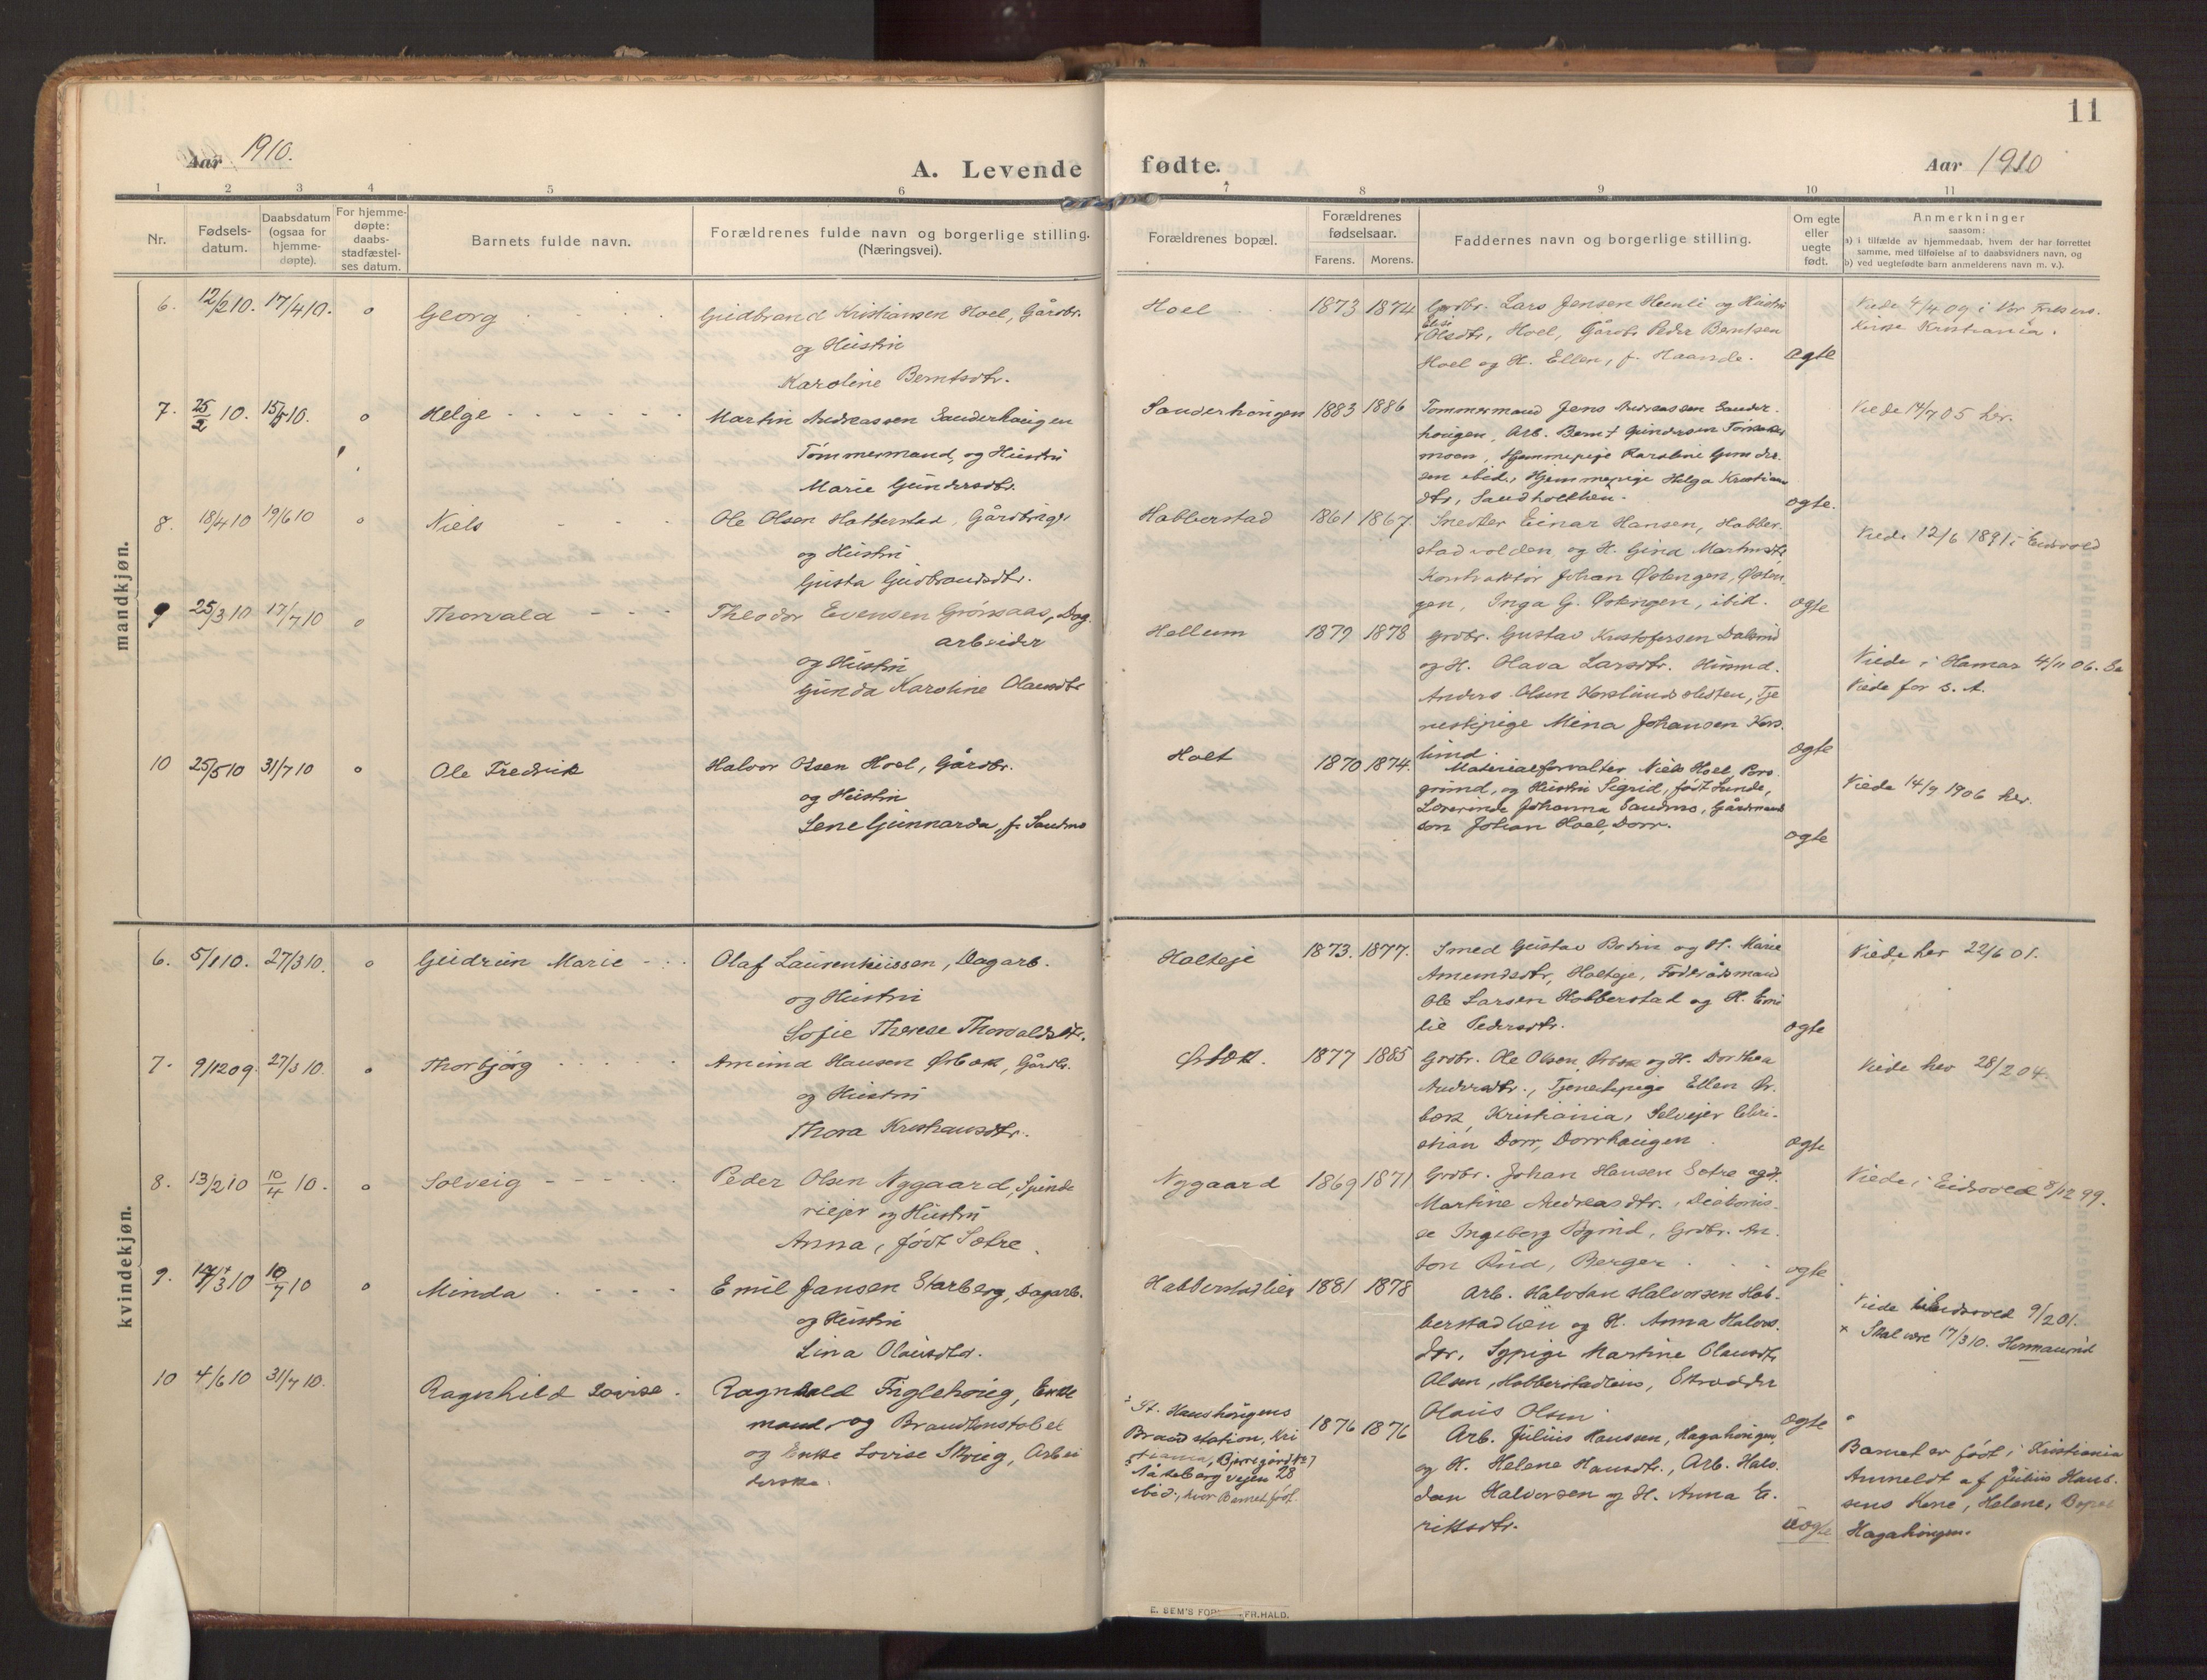 11
Aar 1910.
A. Levende fødte.
Aar 1910
1 2 3 4 5 6 7 8 9 10 11
Nr.
Fødsels-
datum.
Daabsdatum
(ogsaa for
hjemme-
døpte).
For hjemme-
døpte:
daabs-
stadfæstel-
ses datum.
Barnets fulde navn.
Forældrenes fulde navn og borgerlige stilling.
(Næringsvei).
Forældrenes bopæl.
Forældrenes
fødselsaar.
Farens. Morens.
Faddernes navn og borgerlige stilling.
Om egte
eller
uegte
født.
Anmerkninger
saasom:
a) i tilfælde av hjemmedaab, hvem der har forrettet
samme, med tilføielse af to daabsvidners navn, og
b) ved uegtefødte barn anmelderens navn m. v.).
mandkjøn.
6. 12/2 10. 17/4 10. o
Georg
Gudbrand Kristiansen Hoel, Gårdbr.
og Hustru
Karoline Berntsdtr.
Hoel
1873 1874
Grdbr. Lars Jensen og Hustru
Elise
Olsdtr., Hoel, Gårdbr. Peder Berntsen
Hoel og H. Ellen, f. Haande.
ægte
Viede 4/4 09 i Vor Frelsers
Kirke Kristiania.
7. 25/2 10. 15/5 10. o
Helge
Martin Andreassen Sanderhaugen
Tømmermand, og Hustru
Marie Gundersdtr.
Sanderhougen
1883 1886
Tømmermand Jens Andreassen Sander-
hougen, Arb. Bernt Gundersen
moen, Hjemmepige Karoline Gunder-
sen ibid., Hjemmepige Helga Kristians
dtr.,
ægte.
Viede 14/7 05 her.
8. 18/4 10 19/6 10 o
Niels
Ole Olsen Habberstad, Gårdbruger
og Hustru
Gusta Gudbrandsdtr.
Habberstad
1861 1867.
Snedker Einar Hansen, Habber-
stadvolden og H. Gina Martinsdtr,
Kontraktør Johan Østengen, Østen-
gen, Inga G. Østengen, ibid.
ægte
Viede 12/6 1891 i Eidsvold
9 25/3 10 17/7 10 o
Thorvald
Theodor Evensen Grønsaas, Dag-
arbeider
og Hustru
Gunda Karoline Olausdtr
Hellum
1879 1878
Grdbr. Gustav Kristofersen
og H. Olava Larsdtr.
Anders Olsen, Tje
nestepige Mina Johansen Hors-
lund.
ægte
Viede i Hamar 4/11 06.
Viede for s. A.
10 25/5 10 31/7 10 o
Ole Fredrik
Halvor Olsen Hoel, Gårdbr.
og Hustru
Lene Gunnarda, f. Sandmo
Holt
1870 1874.
Materialforvalter Niels Hoel, Pors-
grund, og Hustru Sigrid, født Lunde,
Lærerinde Johanna Sandmo, Gårdmands
søn Johan Hoel, Dorr.
ægte
Viede 14/9 1906 her.
kvindekjøn.
6. 5/1 10. 27/3 10. o
Gudrun Marie
Olaf Laurentiussen, Dagarb.
og Hustru
Sofie Therese Thorvaldsdtr.
Holteje
1873. 1877.
Smed Gustav Bodin og H. Marie
Amundsdtr, Holteje, Føderådsmand
Ole Larsen Habberstad og H. Emi
lie Pedersdtr.
ægte
Viede her 22/6 01.
7. 9/12 09. 27/3 10. o
Thorbjørg
Amund Hansen Ørbæk, Gårdbr.
og Hustru
Thora Kristiansdtr.
Ørbæk.
1877 1885
Grdbr. Ole Olsen Ørbæk og H. Dorthea
Andersdtr., Tjenestepige Ellen Ør-
bæk, Kristiania, Selvejer Chri-
stian Dorr, Dorrhaugen.
ægte
Viede her 28/2 04.
8. 13/2 10 10/4 10. o
Solveig
Peder Olsen Nygaard,
riejer og Hustru
Anna, født Sætre.
Nygaard
1869 1871
Grdbr. Johan Hansen Sætre og H.
Martine Andreasdtr., Diakonis-
se Ingeborg Bjrnd, Grdbr. An-
ton Rud, Berger
ægte
Viede i Eidsvold 8/12 99.
9. 17/3 10 10/7 10 o
Minda
Emil Jansen Starberg, Dagarb.
og Hustru
Lina Olausdtr.
Habberstadlien
1881 1878
Arb. Halvdan Halvorsen Hab-
berstadlien og H. Anna Halvors-
dtr, Sypige Martine Olausdtr
Olsen, Habberstadlens, Skrædder
Olaus Olsen
ægte
Viede i Eidsvold 9/2 01.
× Skal være 17/3 10.
10 4/6 10 31/7 10.
Ragnhild Lovise
Ragnvald Fuglehoug, Enke
mand, og Brandkonstabel
og Enke Lovise Skoug, Arbei
derske.
St. Hanshougens
Brandstation, Kri
stiania, Bjerregårdsgt 7
ibid., hvor Barnet født.
1876 1876
Arb. Julius Hansen, Hagahougen,
og H. Helene Hansdtr., Arb. Halv-
dan Halvorsen og H. Anna E-
riksdtr.
uægte
Barnet er født i Kristiania
Anmeldt af Julius Han-
sens Kone, Helene, Bopæl
Hagahougen.
E. SEM'S FOR FR.HALD.